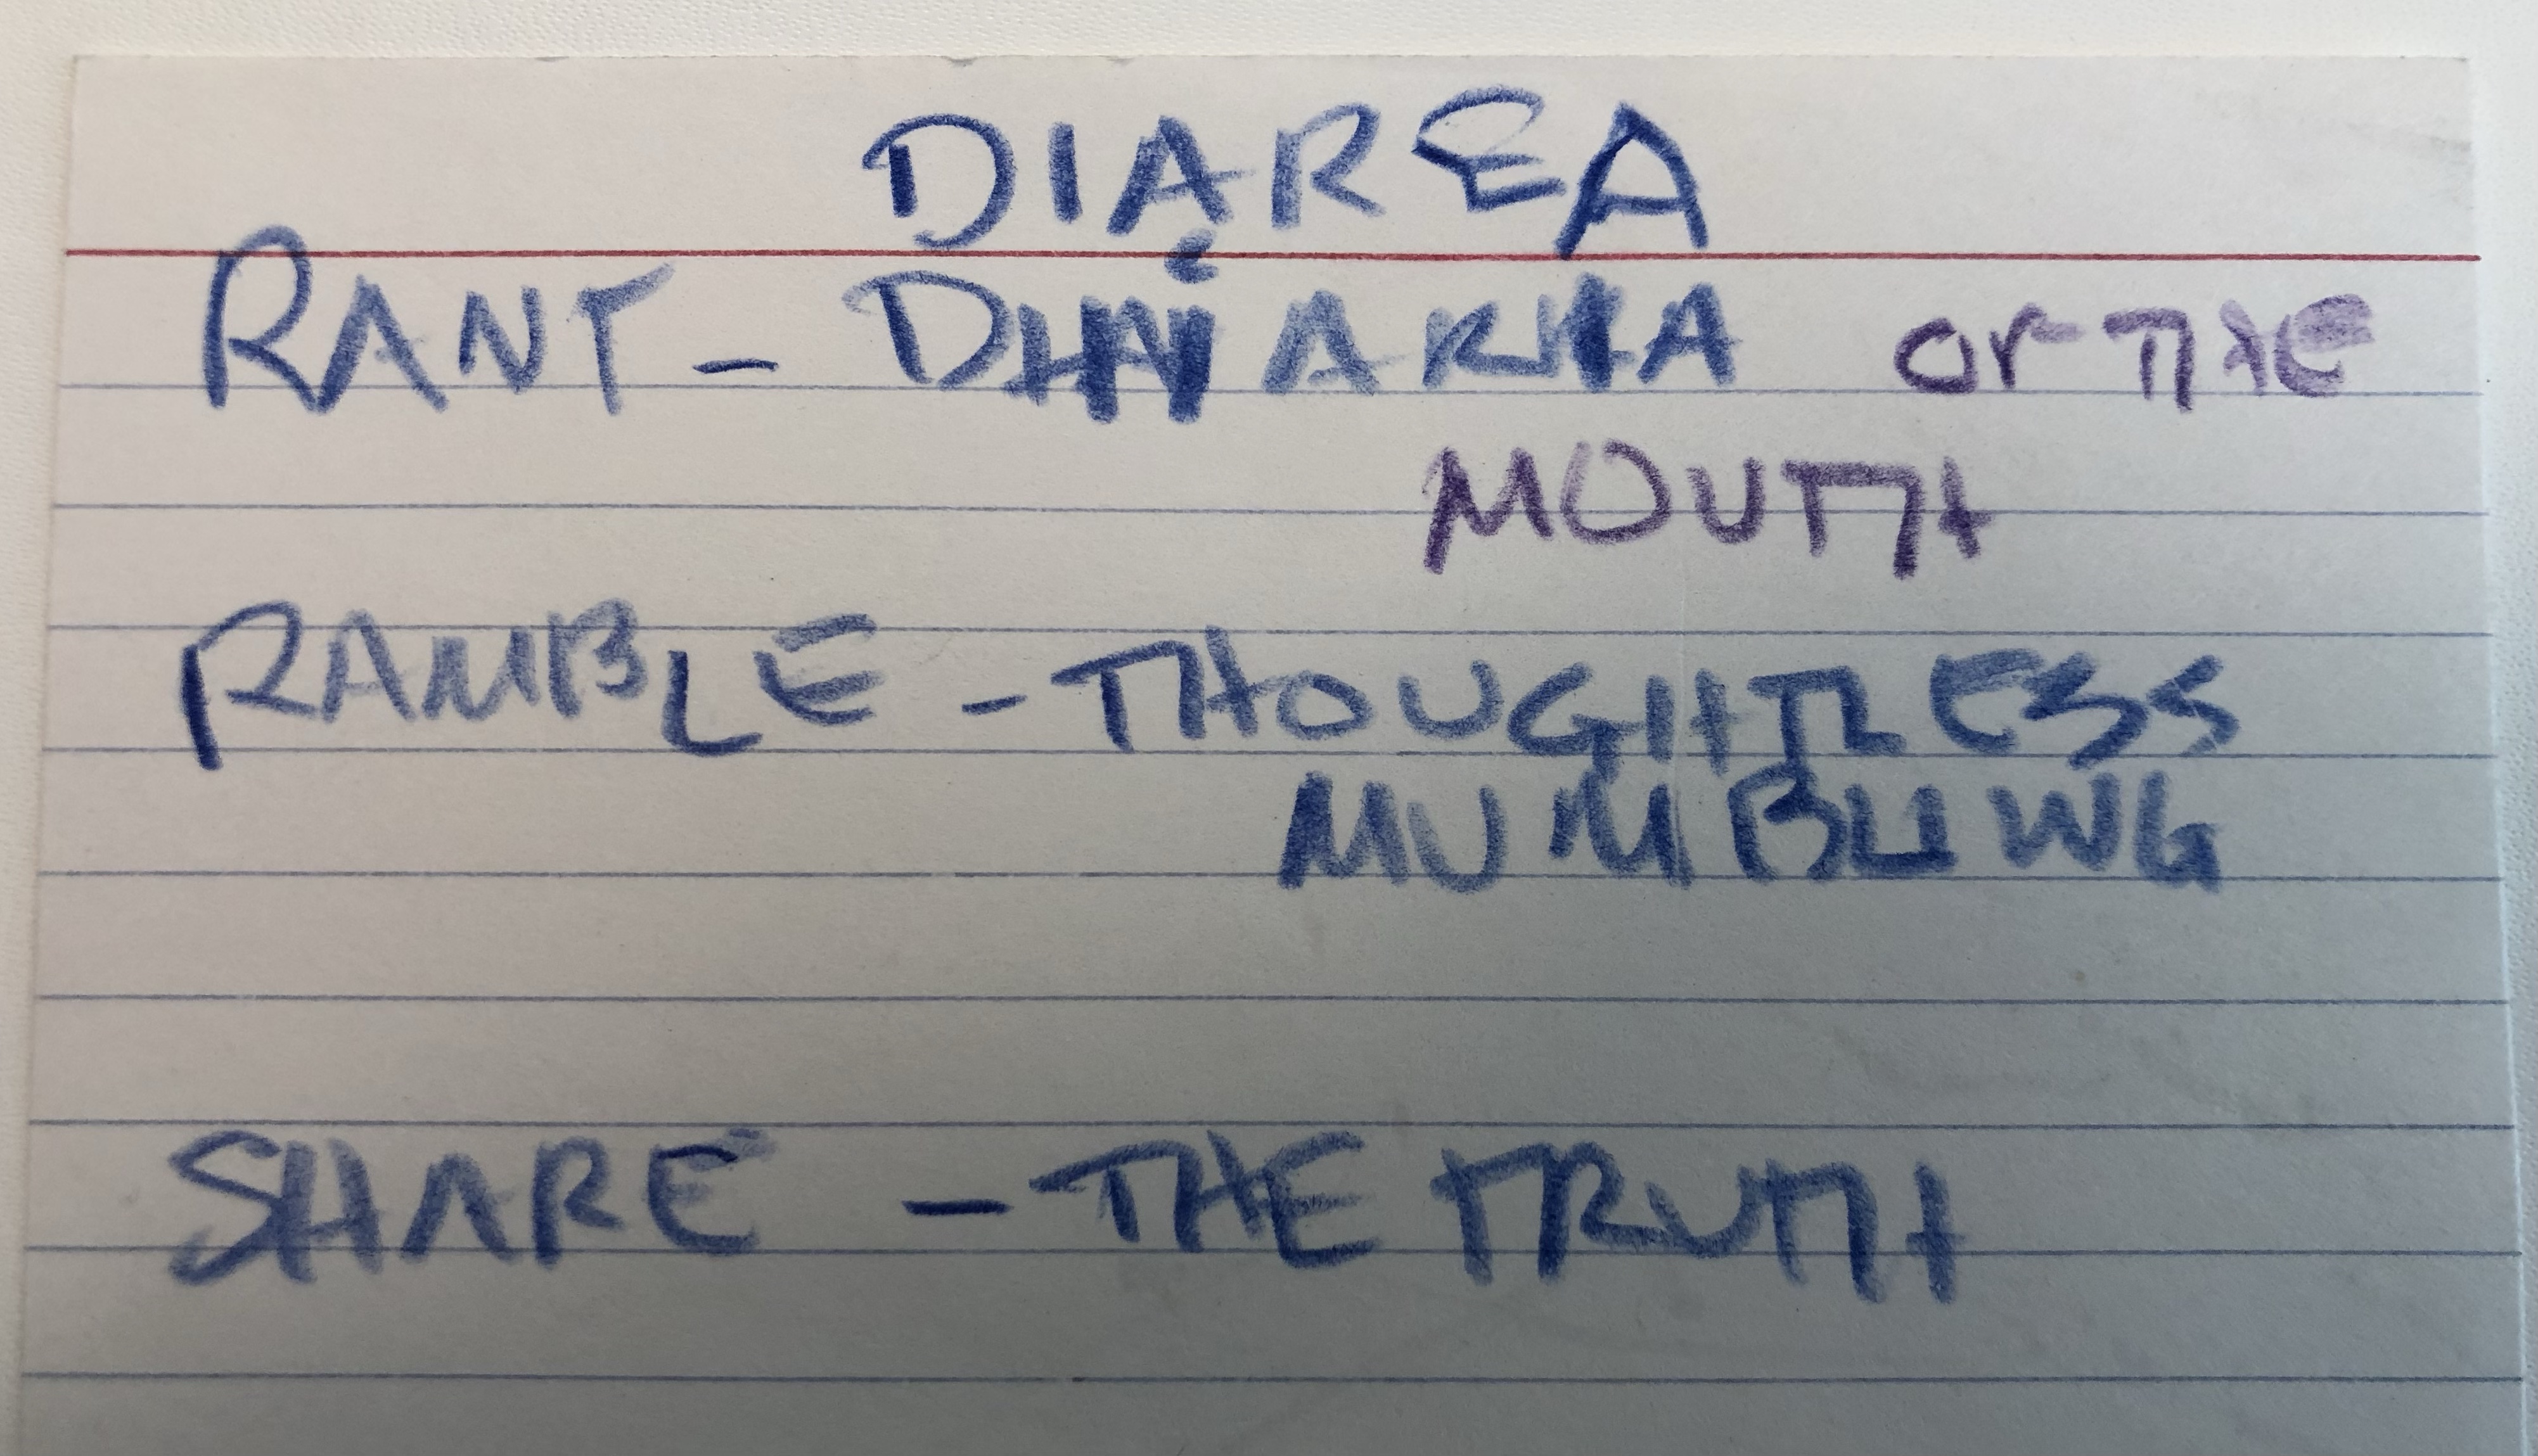 DIAREA
RANT - OF THE
MOUTH
RAMBLE - THOUGHTLESS
MUMBLING
SHARE - THE TRUTH